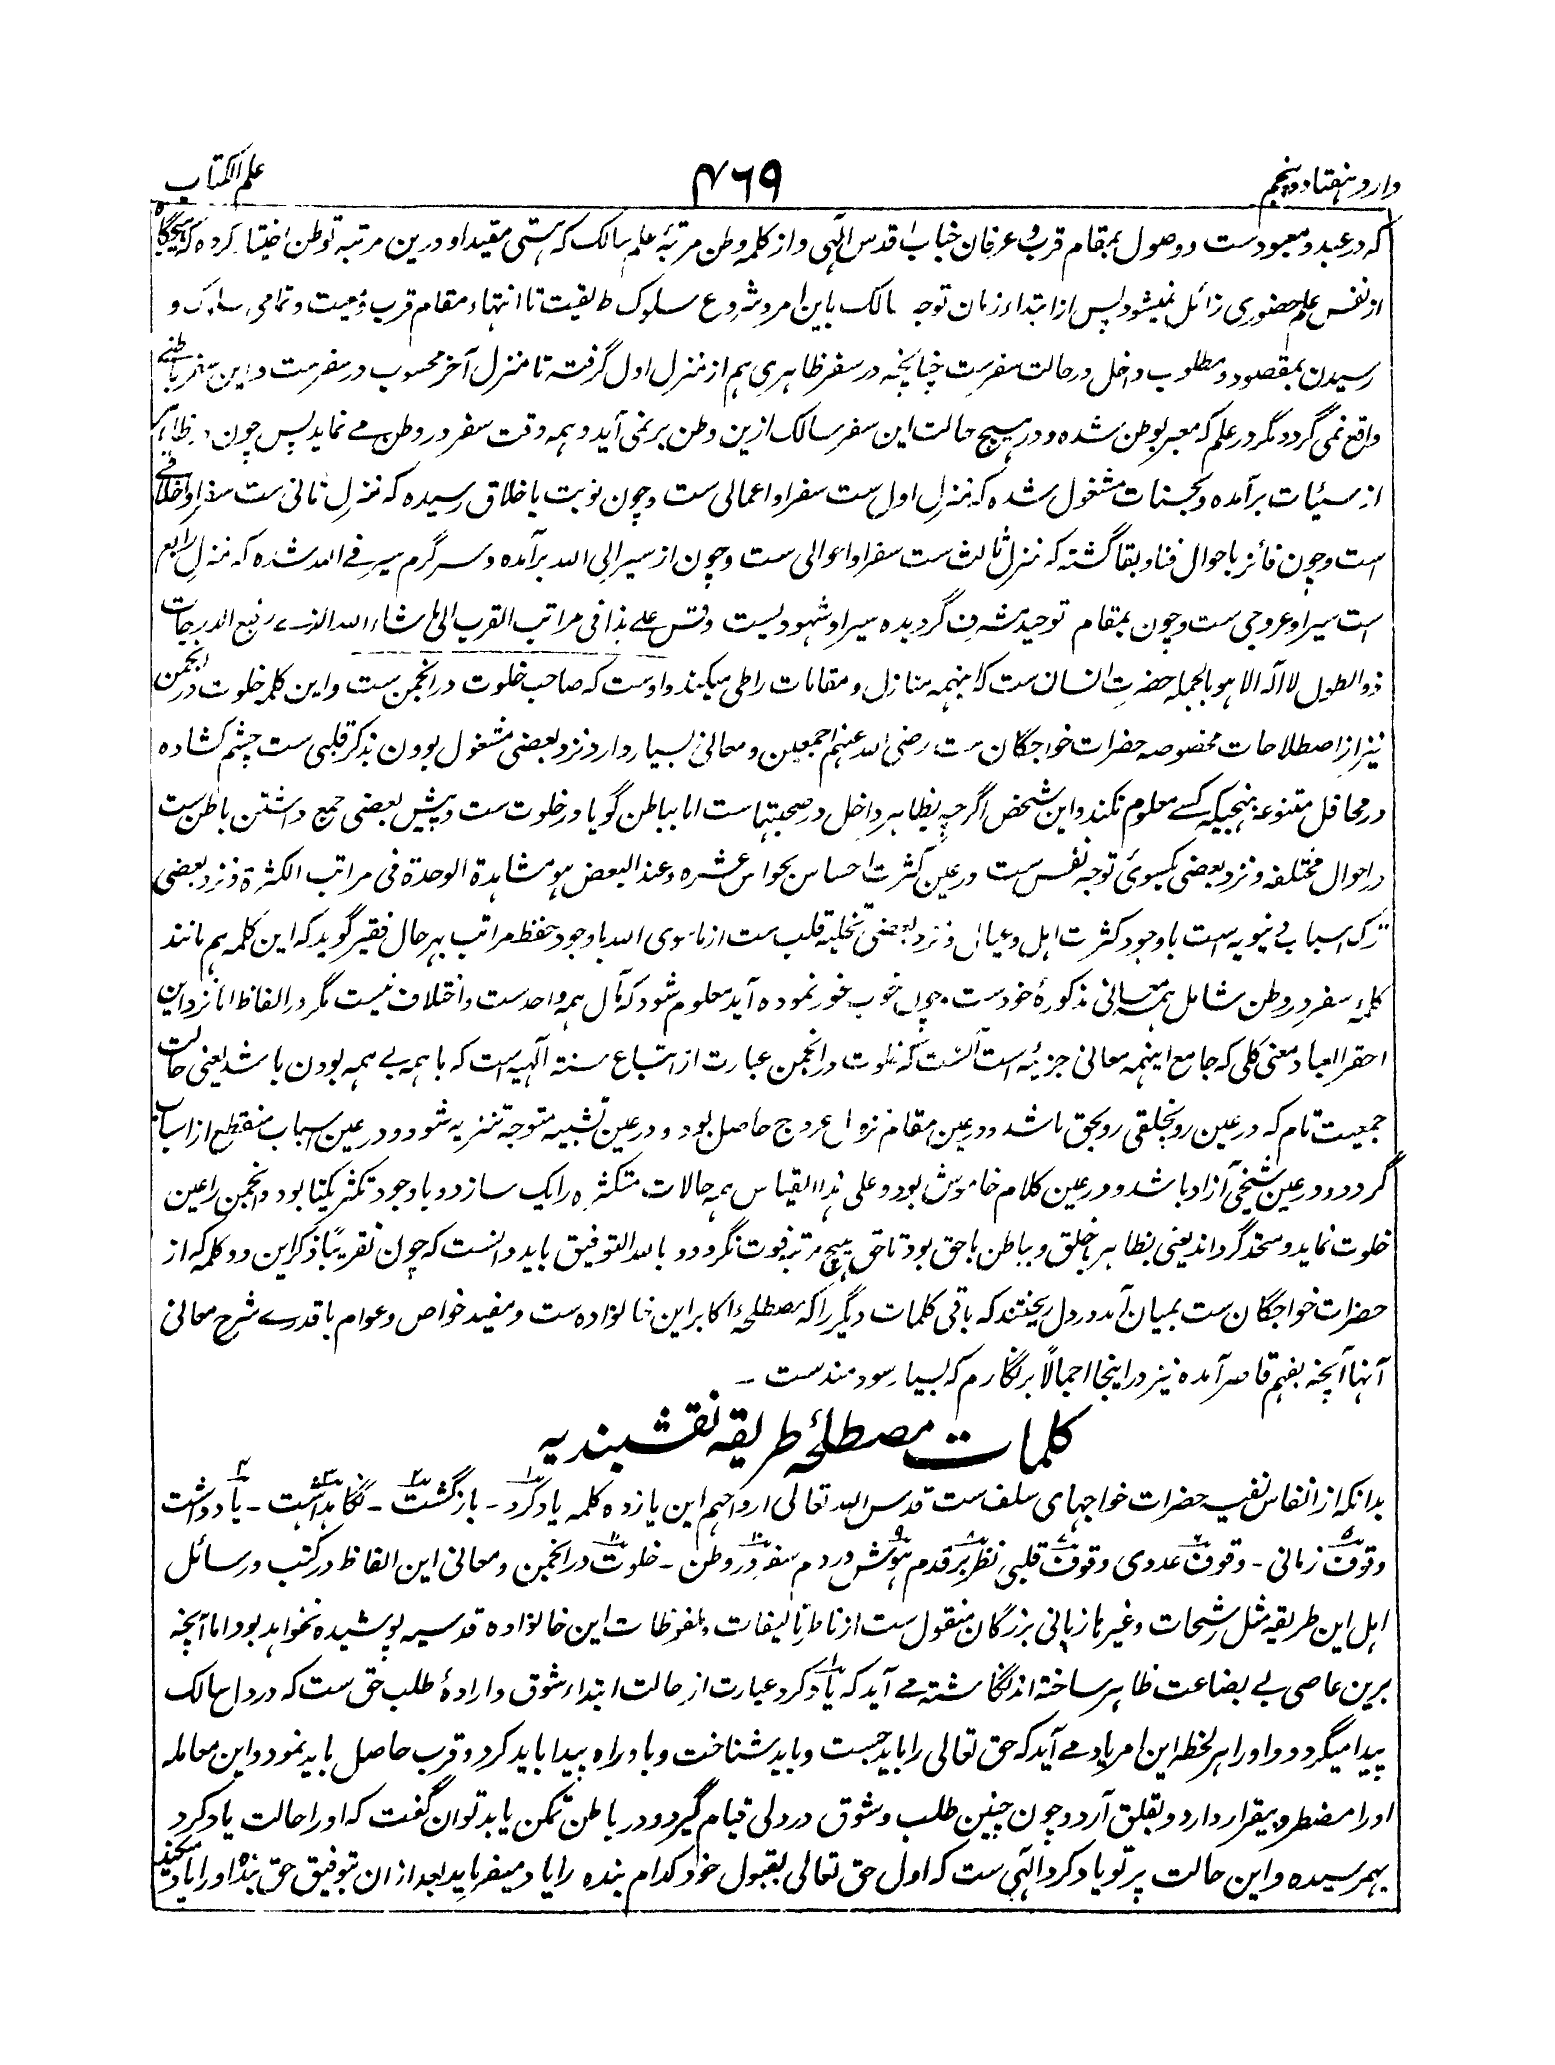 وارد هفتاد و پنجم
۴۶۹
علم الکتاب
که در عبد و معبودست و وصول بمقام قرب و عرفان جناب اقدس الٰهی و از کلمه وطن مرتبهٔ علم سالک که هستی مقید او درین مرتبه توطن اختیار کرده که هیچگاه
از نفس علم حضوری زائل نمیشود پس از ابتداء زمان توجه سالک باین امر و شروع سلوک طریقت تا انتهاء مقام قرب و معیت و تمامی سلوک و
رسیدن بمقصود و مطلوب داخل در حالت سفرست چنانچه در سفر ظاهری هم از منزل اول گرفته تا منزل آخر محسوب در سفرست و این سفر باطنی
واقع نمی گردد مگر در علم که معبر بوطن شده و در هیچ حالت این سفر سالک ازین وطن بر نمی آید و همه وقت سفر در وطن مے نماید پس چون در ظاهر
از سیئات برآمده و بحسنات مشغول شده که منزل اول ست سفر او اعمالی ست و چون نوبت باخلاق رسیده که منزل ثانی ست سفر او اخلاقے
است و چون فائز باحوال فنا و بقا گشته که منزل ثالث ست سفر او احوالی ست و چون از سیر الی الله برآمده و سرگرم سیر فے الله شده که منزل رابع
است سیر او عروجی ست و چون بمقام توحید مشرف گردیده سیر او شهودیست وقس علے هذا فی مراتب القرب الی ما شاء الله الذے رفیع الدرجات
ذو الطول لا اله الا هو بالجمله حضرت انسان ست که اینهمه منازل و مقامات را طی میکند و اوست که صاحب خلوت در انجمن ست و این کلمه خلوت در انجمن
نیز از اصطلاحات مخصوصه حضرات خواجگان ست رضی الله عنهم اجمعین و معانی بسیار دارد نزد بعضی مشغول بودن بذکر قلبی ست چشم کشاده
در محافل متنوعه بنهجیکه کسے معلوم نکند و این شخص اگرچه بظاهر داخل در صحبتهاست اما بباطن گویا در خلوت ست و پیش بعضی جمع داشتن باطن ست
در احوال مختلفه و نزد بعضی یکسوئ توجه نفس ست در عین کثرت احساس بحواس عشره و عند البعض هو مشاهدة الوحدة فی مراتب الکثرة و نزد بعضی
ترک اسباب دنیویه است با وجود کثرت اهل و عیال و نزد بعضی تخلیه قلب ست از ماسوی الله با وجود حفظ مراتب بهر حال فقیر گوید که این کلمه هم مانند
کلمهٔ سفر در وطن شامل همه معانی مذکورهٔ خودست چون خوب غور نموده آید معلوم شود که مآل همه واحدست و اختلاف نیست مگر در الفاظ اما نزد این
احقر العباد معنی کلی که جامع اینهمه معانی جزئیه است آنست که خلوت در انجمن عبارت از اتباع سنة الٰهیه است که با همه بے همه بودن باشد یعنی حالت
جمعیت تام که در عین رو بخلقی رو بحق باشد و در عین مقام نزول عروج حاصل بود و در عین تشبیه متوجه تنزیه شود و در عین اسباب منقطع از اسباب
گردد و در عین شیخی آزاد باشد و در عین کلام خاموش بود و علی هذا القیاس همه حالات متکثره را یک سازد و با وجود تکثر یکتا بود و انجمن را عین
خلوت نماید و متحد گرداند یعنی بظاهر با خلق و بباطن با حق بود تا حق هیچ مرتبه فوت نگردد و بالله التوفیق باید دانست که چون تقریباً ذکر این دو کلمه که از
حضرات خواجگان ست بمیان آمد در دل ریختند که باقی کلمات دیگر را که مصطلحهٔ اکابر این خانواده ست و مفید خواص و عوام با قدرے شرح معانی
آنها آنچه بفهم قاصر آمده نیز در اینجا اجمالاً برنگارم که بسیار سودمندست ۔
کلمات مصطلحهٔ طریقه نقشبندیه
بدانکه از انفاس نفیسه حضرات خواجهای سلف ست قدس الله تعالی ارواحهم این یازده کلمه یادکرد ۔ بازگشت ۔ نگاهداشت ۔ یادداشت
وقوف زمانی ۔ وقوف عددی وقوف قلبی نظر بر قدم هوش در دم سفر در وطن ۔ خلوت در انجمن و معانی این الفاظ در کتب و رسائل
اهل این طریقه مثل رشحات و غیرها زبانی بزرگان منقول ست از ناظر تالیفات و ملفوظات این خانواده قدسیه پوشیده نخواهد بود اما آنچه
برین عاصی بے بضاعت ظاهر ساخته اند نگاشته مے آید که یادکرد عبارت از حالت ابتداء شوق و ارادهٔ طلب حق ست که در دل سالک
پیدا میگردد و او را هر لحظه این امر یاد مے آید که حق تعالی را باید جست و باید شناخت و باو راه پیدا باید کرد و قرب حاصل باید نمود و این معامله
او را مضطر و بیقرار دارد و بقلق آرد و چون چنین طلب و شوق در دلی قیام گیرد و در باطن تمکن یابد توان گفت که او را حالت یادکرد
بهمرسیده و این حالت پرتو یادکرد الٰهی ست که اول حق تعالی بقبول خود کدام بنده را یاد میفرماید بعد از ان بتوفیق حق بنده او را یاد میکند